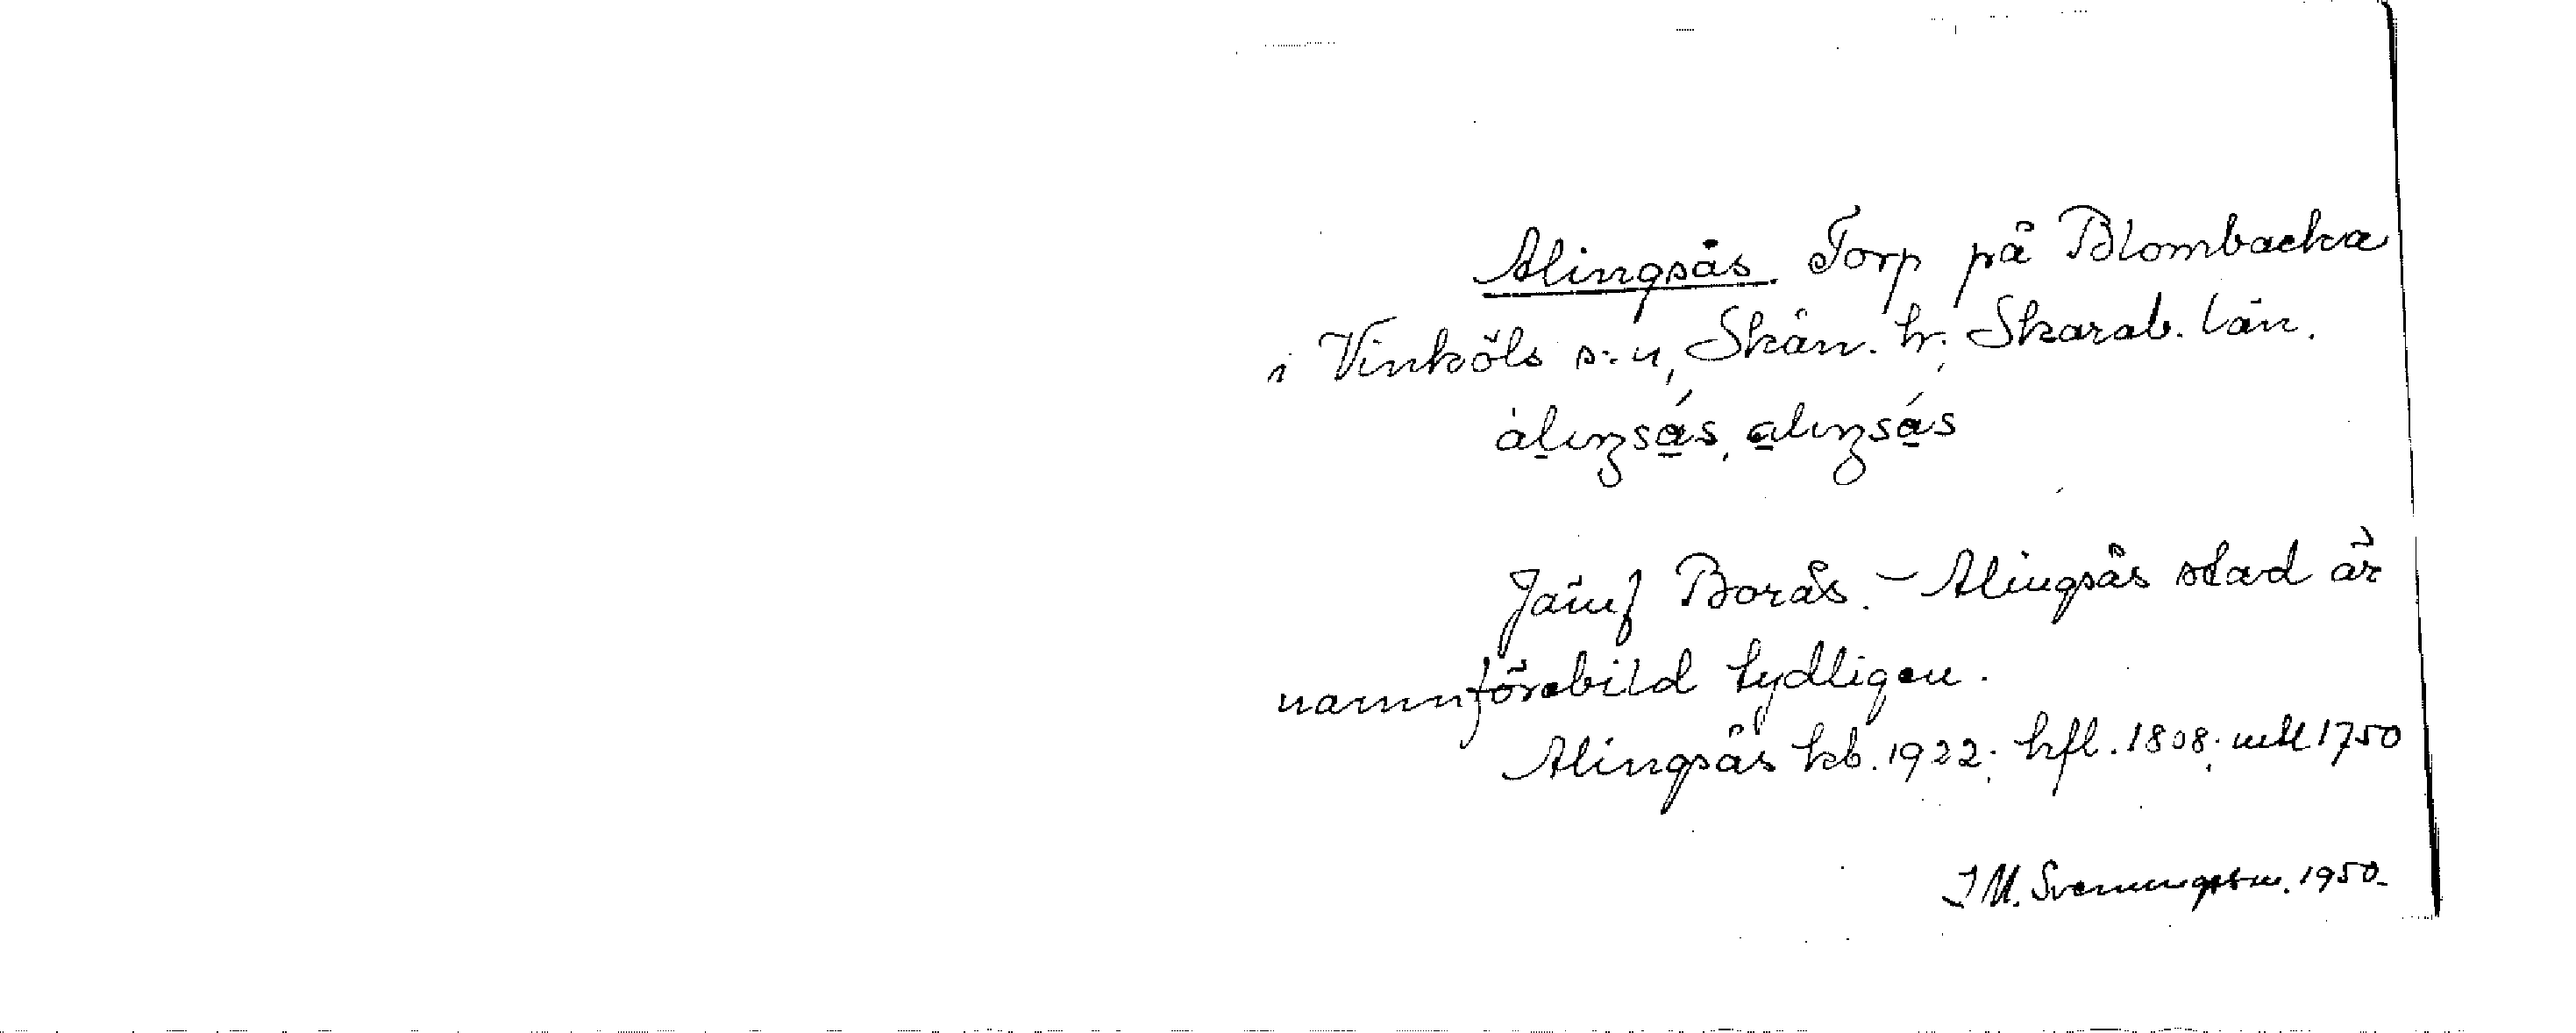 Alingsås. Torp på Blombacka
i Vinköls s:n, Skån. hr; Skarab. län.
àlıŋsás, alıŋsás
Jämf Borås. – Alingsås stad är
namnförebild tydligen.
Alingsås kb. 1922; hfl. 1808; mtl 1750
I M. Svenungsson. 1950.